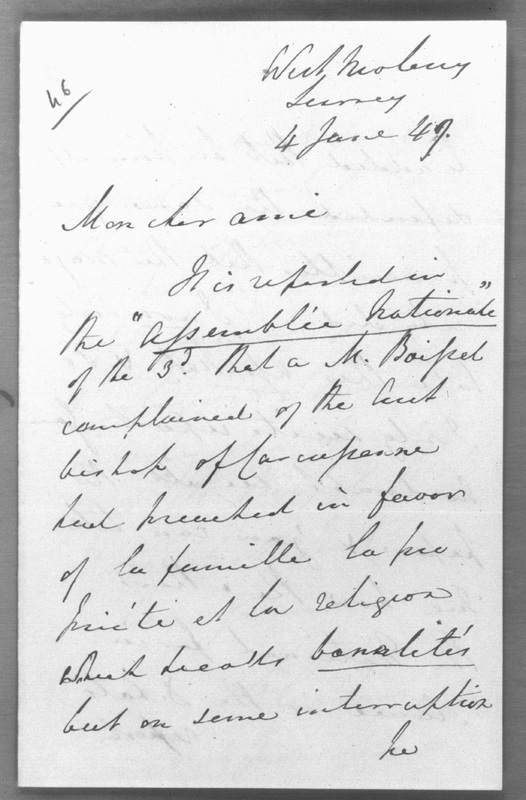 46
West Molesey
Surrey
4 June 49.
Mon cher ami
It is reported in
the "Assemblée Nationale"
of the 3d. that a M. Boissel
complained of the
bishop of Carcassonne
had preached in favor
of la famille la pro
priété et la religion
which he calls banalités
but on some interruption
he